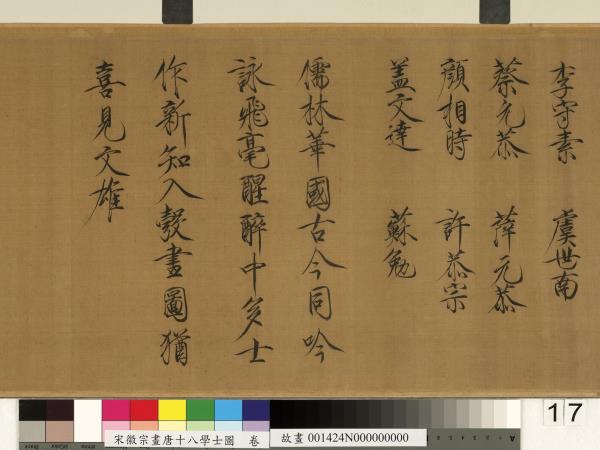 李守素 虞世南
蔡元恭 薛元恭
顏相時 許恭宗
盖文達 蘇勉
儒林華國古今同吟
詠飛毫醒醉中多士
作新知入彀畫圖猶
喜見文雄
宋徽宗畫唐十八學士圖 卷
故畫 001424N000000000
17